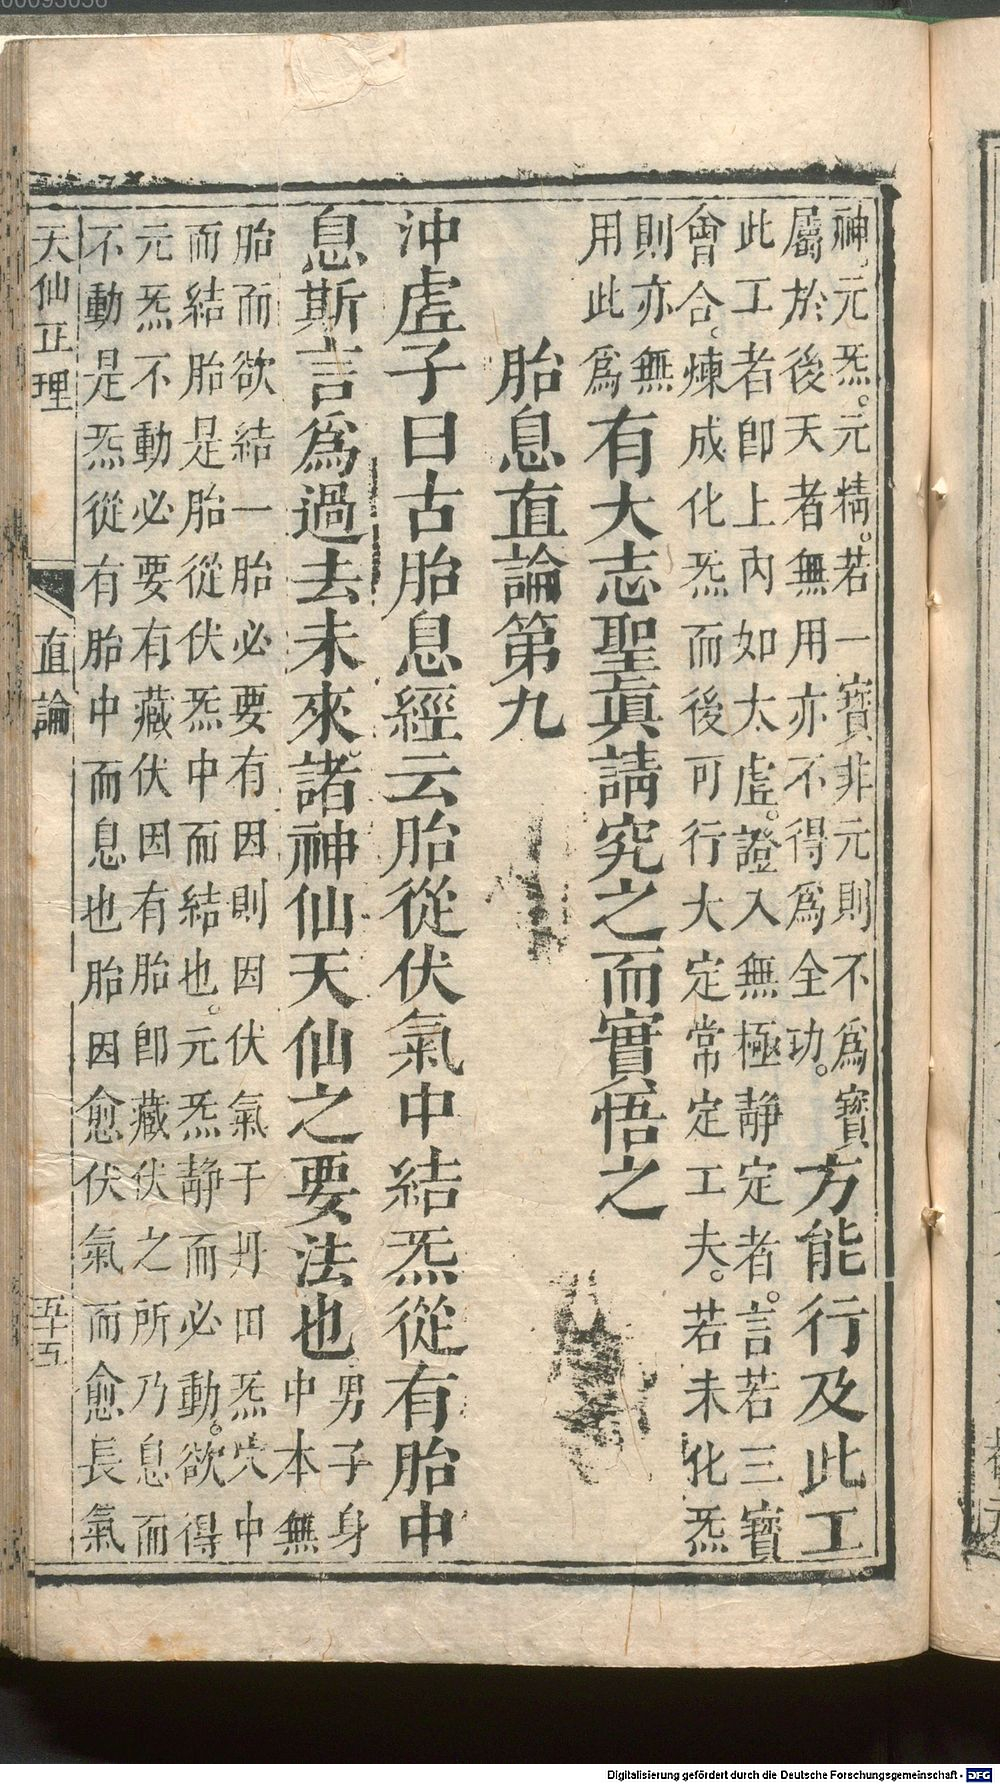 神元炁。元精。若一寶非元則不爲寶
屬於後天者無用亦不得爲全功。方能行及此工
此工者卽上內如太虛。證入無極靜定者。言若三寶
會合。煉成化炁而後可行大定常定工夫。若未化炁
則亦無
用此爲有大志聖眞請究之而實悟之
胎息直論第九
沖虛子曰古胎息經云胎從伏氣中結炁從有胎中
息斯言爲過去未來諸神仙天仙之要法也。男子身
中本無
胎而欲結一胎必要有因則因伏氣于丹田炁穴中
而結胎是胎從伏炁中而結也。元炁靜而必動。欲得
元炁不動必要有藏伏因有胎卽藏伏之所乃息而
不動是炁從有胎中而息也胎因愈伏氣而愈長氣
天仙正理 直論 五十五
00093056
Digitalisierung gefördert durch die Deutsche Forschungsgemeinschaft - DFG